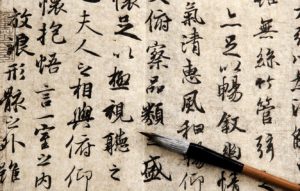 無絲竹管弦
足以暢敘幽
氣清惠風和
俯察品類之盛
懷足以極視聽之
夫人之相與俯仰
懷抱悟言一室之內
放浪形骸之外雖